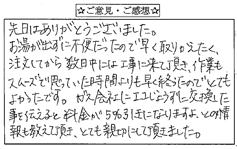 ☆ご意見・ご感想☆
先日はありがとうございました。
お湯が出ずに不便だったので早く取りかえたく、
注文してから数日中には工事に来て頂き、作業も
スムーズで思っていた時間よりも早く終ったのでとても
よかったです。ガス会社にエコじょうずに交換した
事を伝えると料金が5％引きになりますよとの情
報も教えて頂き、とても親切にして頂きました。